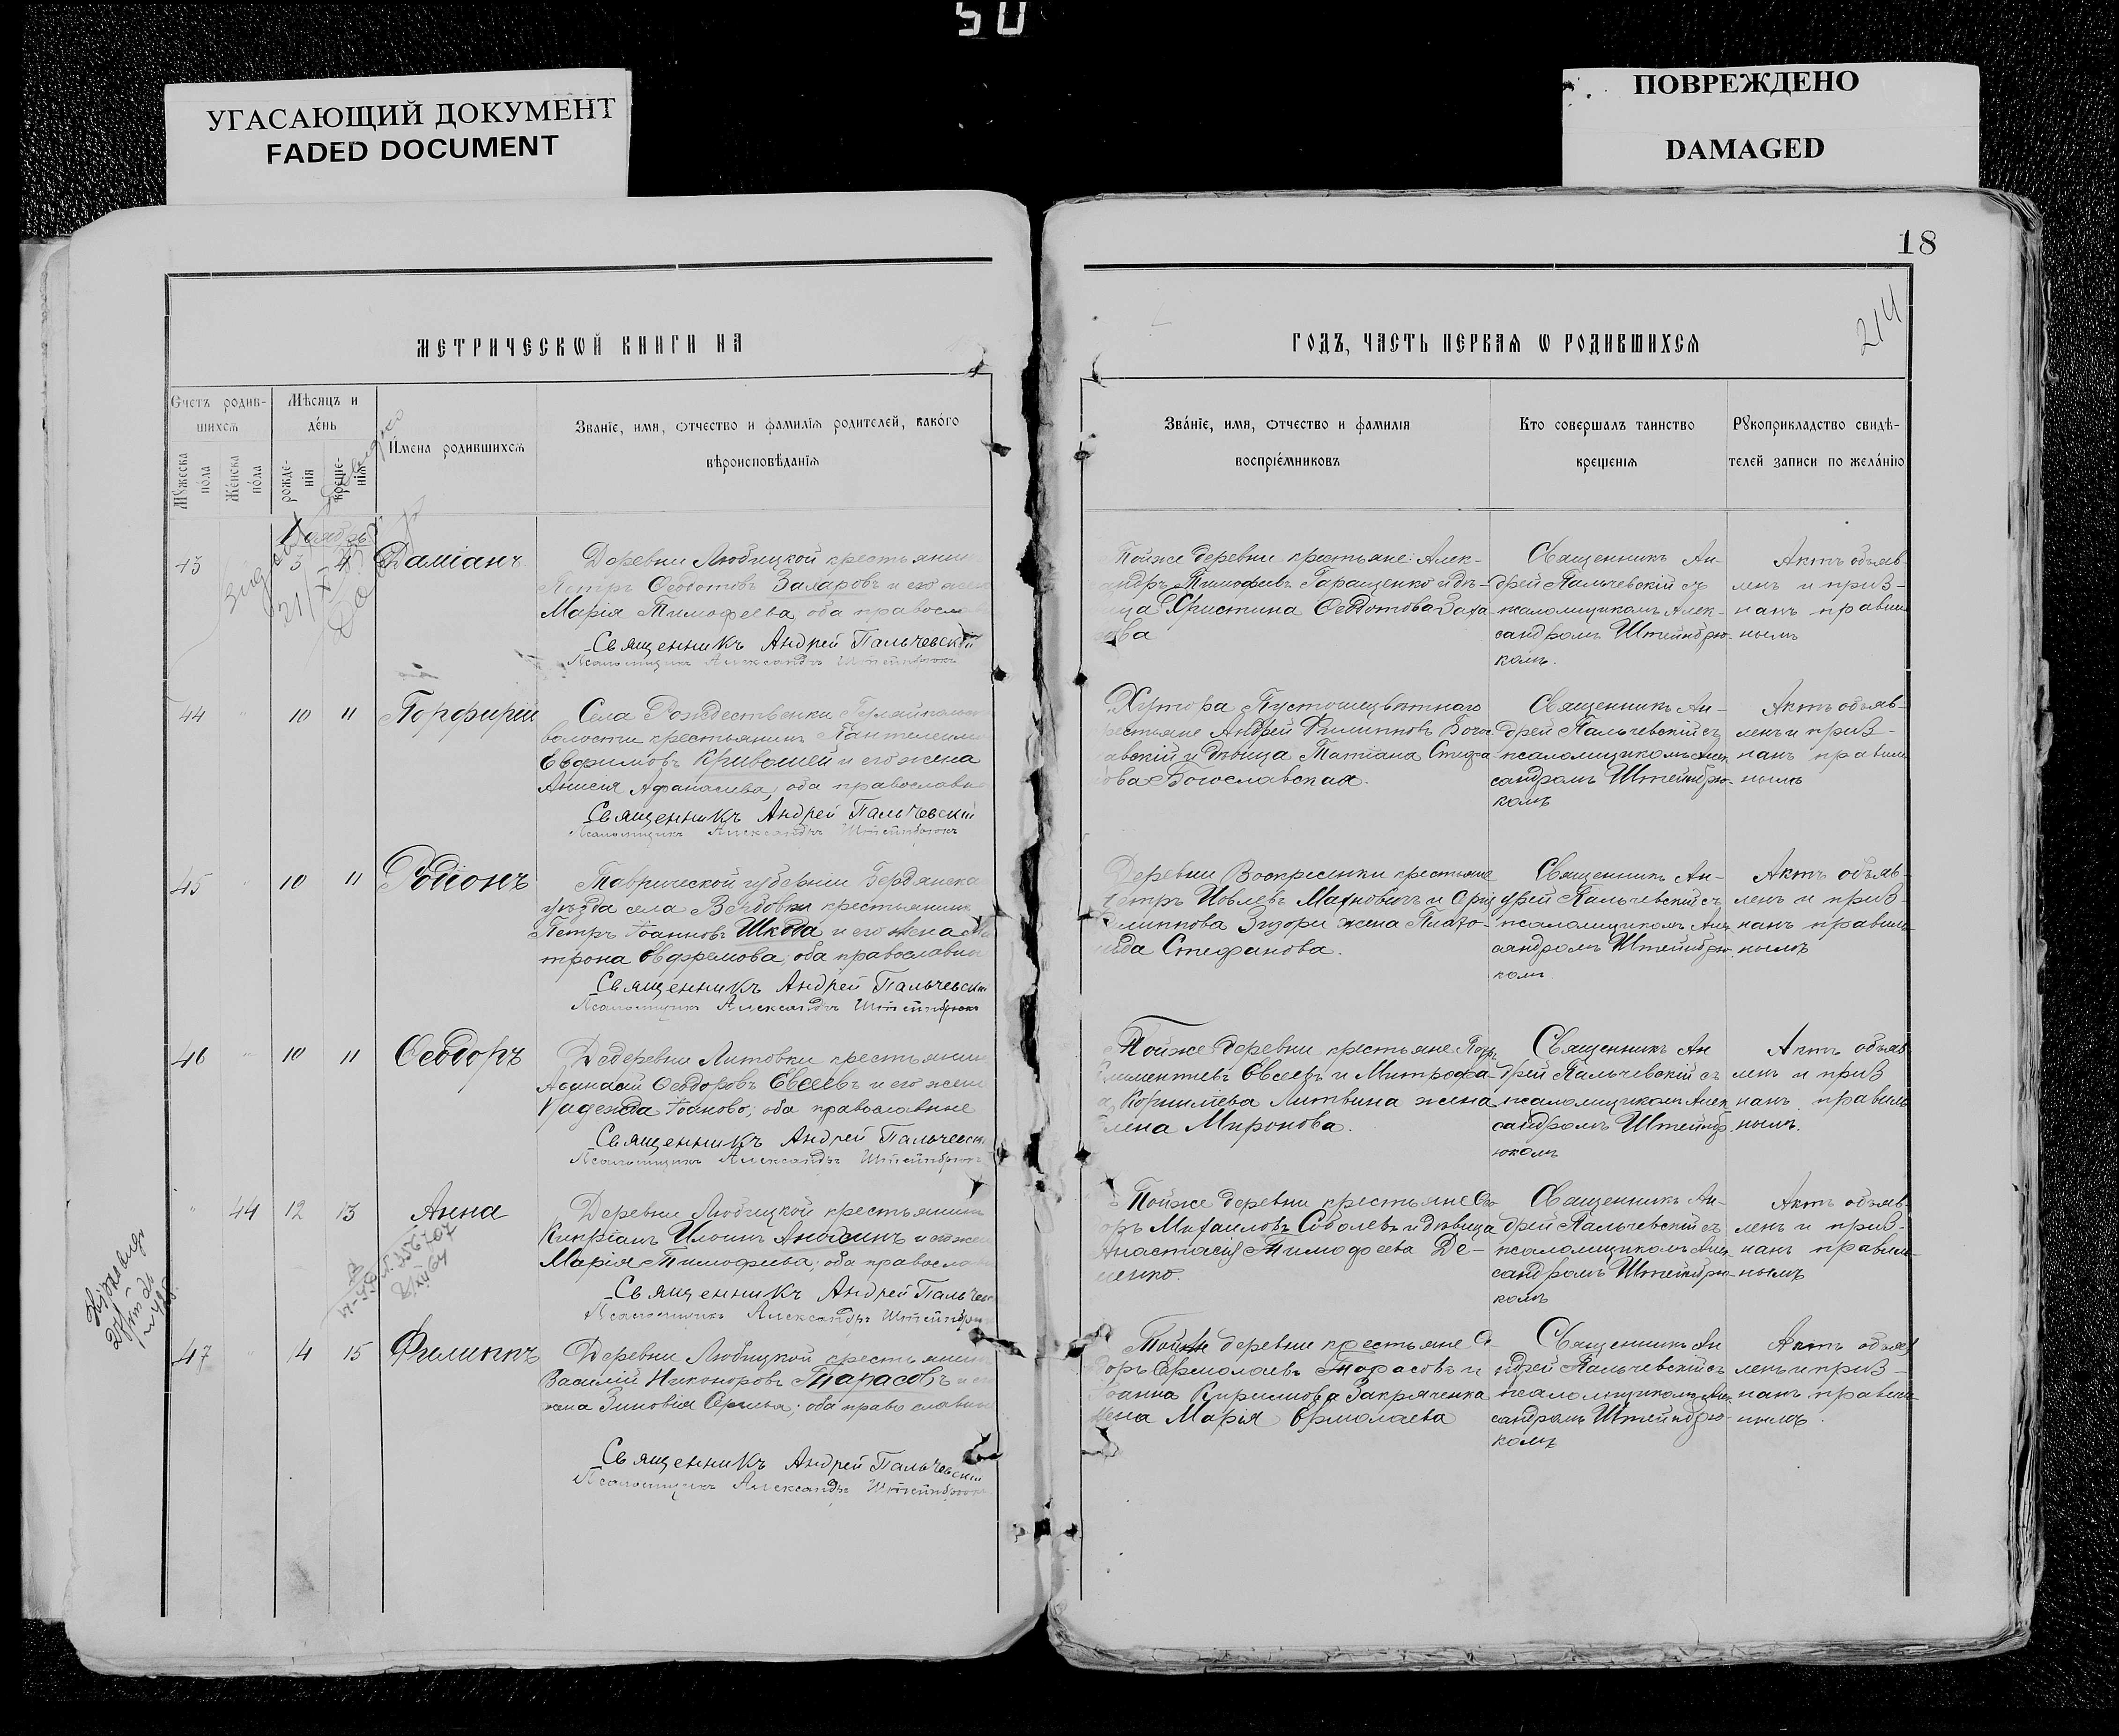 50
УГАСАЮЩИЙ ДОКУМЕНТ
FADED DOCUMENT
ПОВРЕЖДЕНО
DAMAGED
18
214
МЕТРИЧЕСКѠЙ КНИГИ НА
ГОДЪ, ЧАСТЬ ПЕРВАѦ Ѡ РОДИВШИХСѦ
Счетъ родив-
шихсѧ
Мѣсяцъ и
де́нь
Мꙋжеска по́ла
Же́нска по́ла
рожде-нія
креще-нія
И́мена родившихсѧ
Званіе, имя, ѻтчество и фамилія родителей, како́го
вѣроисповѣданія
Зва́ніе, имя, ѻтчество и фамилія
воспріе́мниковъ
Кто совершалъ таинство
крещенія
Рꙋкоприкладство свидѣ-
телей записи по жела́нію
43
3 4
Даміанъ
Деревни Любицкой крестьянин
Петръ Ѳеодотовъ Захаровъ и его жен
Марія Тимоѳеева, оба православ
Священникъ Андрей Пальчевскій
Псаломщикъ Александръ Штейнбрюкъ
Тойже деревни крестьяне: Алек-
сандръ Тимоѳеевъ Гаращенко и дѣ-
ица Христина Ѳеодотова Заха-
ова
Священникъ Ан-
дрей Пальчевскій съ
псаломщикомъ Алек-
сандромъ Штейнбрю-
комъ.
Актъ объяв-
ленъ и приз-
нанъ правиль
нымъ
44 " 10 11
Порфирій
Села Рождественки Гуляйпольск
волости крестьянинъ Пантелеимо
Евфимовъ Кривошей и его жена
Анисія Аѳанасьева, оба православн
Священникъ Андрей Пальчевскій
Псаломщикъ Александръ Штейнбрюкъ
Хутора Пустошецвѣтнаго
рестьяне Андрей Филипповъ Бого
авскій и дѣвица Татіана Стефа
ова Богославская.
Священникъ Ан-
дрей Пальчевскій съ
псаломщикомъ Алек
сандромъ Штейнбрю-
комъ
Актъ объяв-
ленъ и приз-
нанъ правиль
нымъ
45 " 10 11
Родіонъ
Таврической губерніи Бердянска
уѣзда села Вербовки крестьянинъ
Петръ Іоанновъ Шкода и его жена Ма
трона Евфремова, оба православны
Священникъ Андрей Пальчевскі
Псаломщикъ Александръ Штейнбрюкъ
Деревни Воскресенки крестьяне
Петръ Іовлевъ Махновичъ и
илиппова жена
Стефанова.
Священникъ Ан-
дрей Пальчевскій съ
псаломщикомъ Алек
сандромъ Штейнбрю-
комъ
Актъ объяв-
ленъ и приз-
нанъ правиль
нымъ
46 " 10 11
Ѳеодоръ
Деревни Литовки крестьянин
Аѳанасій Ѳеодоровъ Евсеевъ и его жен
Надежда Іоанова; оба православные
Священникъ Андрей Пальчевск
Псаломщикъ Александръ Штейнбрюкъ
Тойже деревни крестьяне
лиментіевъ Евсеевъ и Митрофа-
а Корниліева Литвина жена
лена Миронова.
Священникъ Ан
дрей Пальчевскій съ
псаломщикомъ Алек
сандромъ Штейнбр
юкомъ
Актъ объяв
ленъ и приз
нанъ правиль
нымъ.
" 44 12 13
Анна
Деревни Любицкой крестьянинъ
Кипріанъ Ильинъ Аносинъ и его жен
Марія Тимоѳеева; оба православн
Священникъ Андрей Пальчев
Псаломщикъ Александръ Штейнбрю
Тойже деревни крестьяне Ѳео
оръ Михаиловъ Соболевъ и дѣвица
Анастасія Тимоѳеева Де-
ненко.
Священникъ Ан-
дрей Пальчевскій съ
псаломщикомъ Алек
сандромъ Штейнбрю-
комъ
Актъ объяв-
ленъ и приз-
нанъ правиль-
нымъ
47 " 14 15
Филиппъ
Деревни Любицкой крестьянин
Василій Никоноровъ Тарасовъ и ег
жена Зиновія Сергіева; оба православны
Священникъ Андрей Пальчевскій
Псаломщикъ Александръ Штейнбрюкъ
Тойже деревни крестьяне Ѳ
доръ Ермолаевъ Тарасовъ и
Іоанна Кириллова Закряченка
жена Марія Ермолаева
Священникъ Ан
дрей Пальчевскій съ
псаломщикомъ Алек
сандромъ Штейнбрю-
комъ
Актъ объяв
ленъ и приз-
нанъ правиль
нымъ.